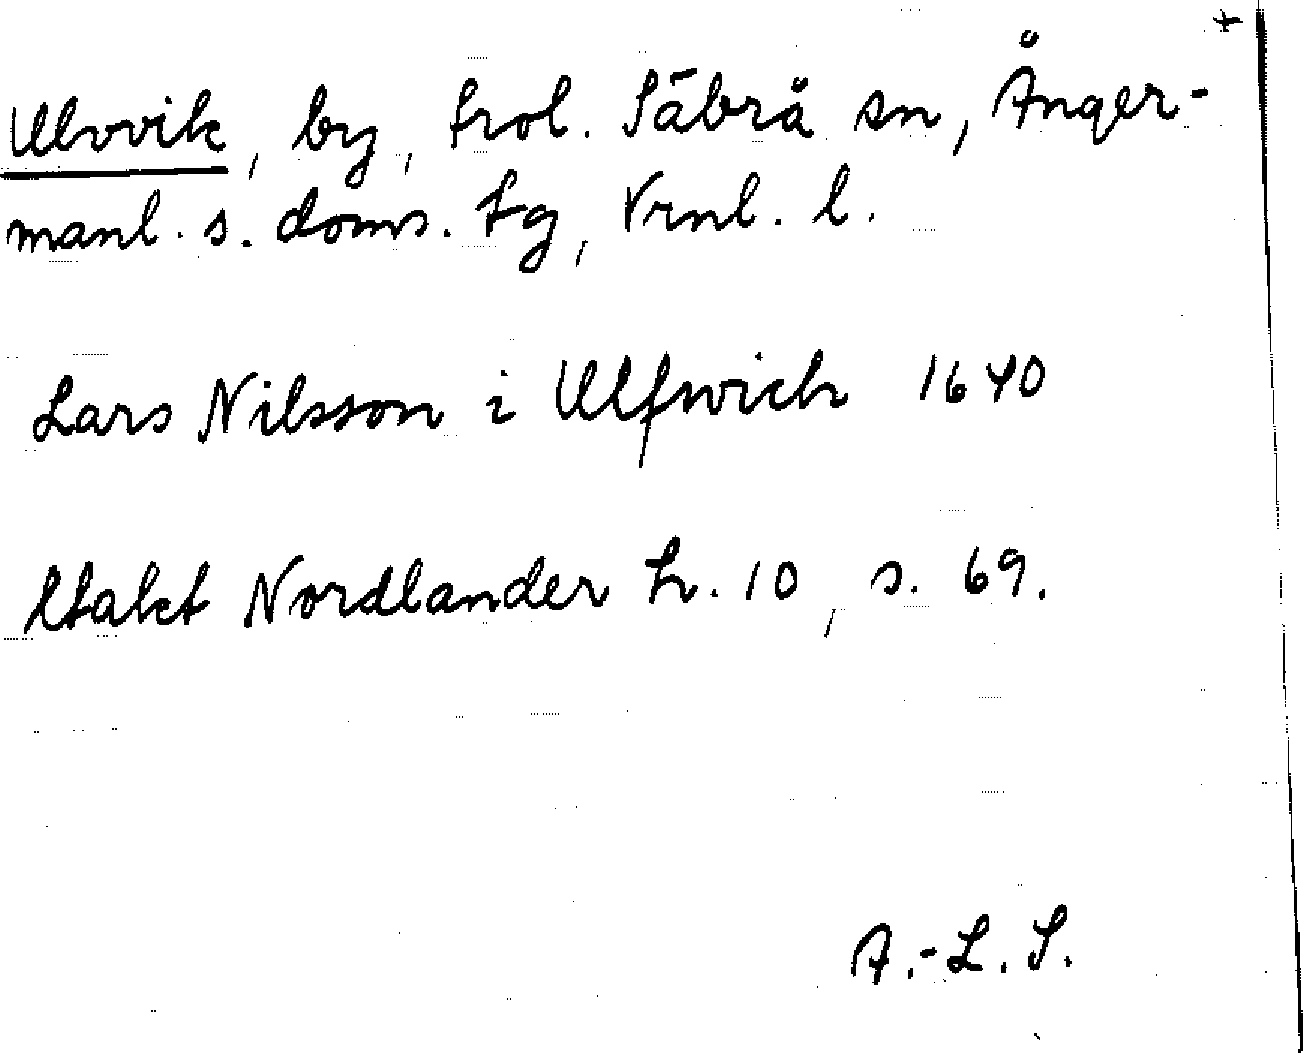 +
Ulvvik, by, trol. Säbrå sn, Ånger-
manl. s. doms. tg, Vrnl. l.
Lars Nilsson i Ulfwich 1640
Utakt Nordlander h. 10, s. 69.
A.-L. S.